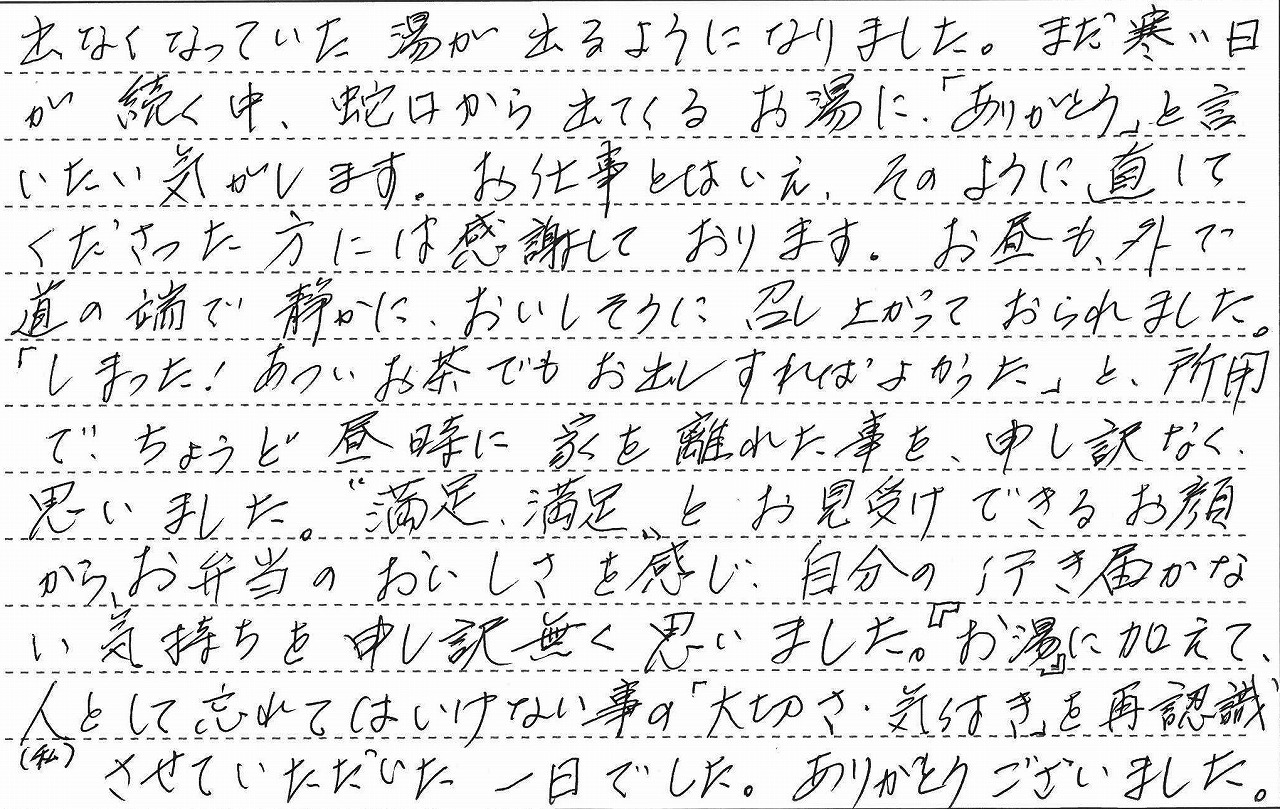 出なくなっていた湯が出るようになりました。まだ寒い日
が続く中、蛇口から出てくるお湯に、「ありがとう」と言
いたい気がします。お仕事とはいえ、そのように、直して
くださった方には感謝しております。お昼も、外で
道の端で静かに、おいしそうに召し上がっておられました。
「しまった!あついお茶でもお出しすればよかった」と、所用
で、ちょうど昼時に家を離れた事を、申し訳なく、
思いました。〝満足、満足〟とお見受けできるお顔
から、お弁当のおいしさを感じ、自分の行き届かな
い気持ちを申し訳無く思いました。『お湯』に加えて、
人として忘れてはいけない事の「大切さ・気付き」を再認識
(私) させていただいた一日でした。ありがとうございました。